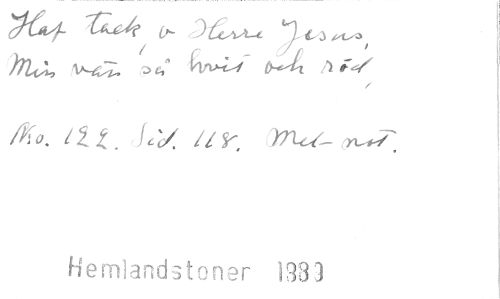 Haf tack, o Herre Jesus,
Min vän så hvit och röd,
No. 122. Sid. 118. Met not.
Hemlandstoner 1889